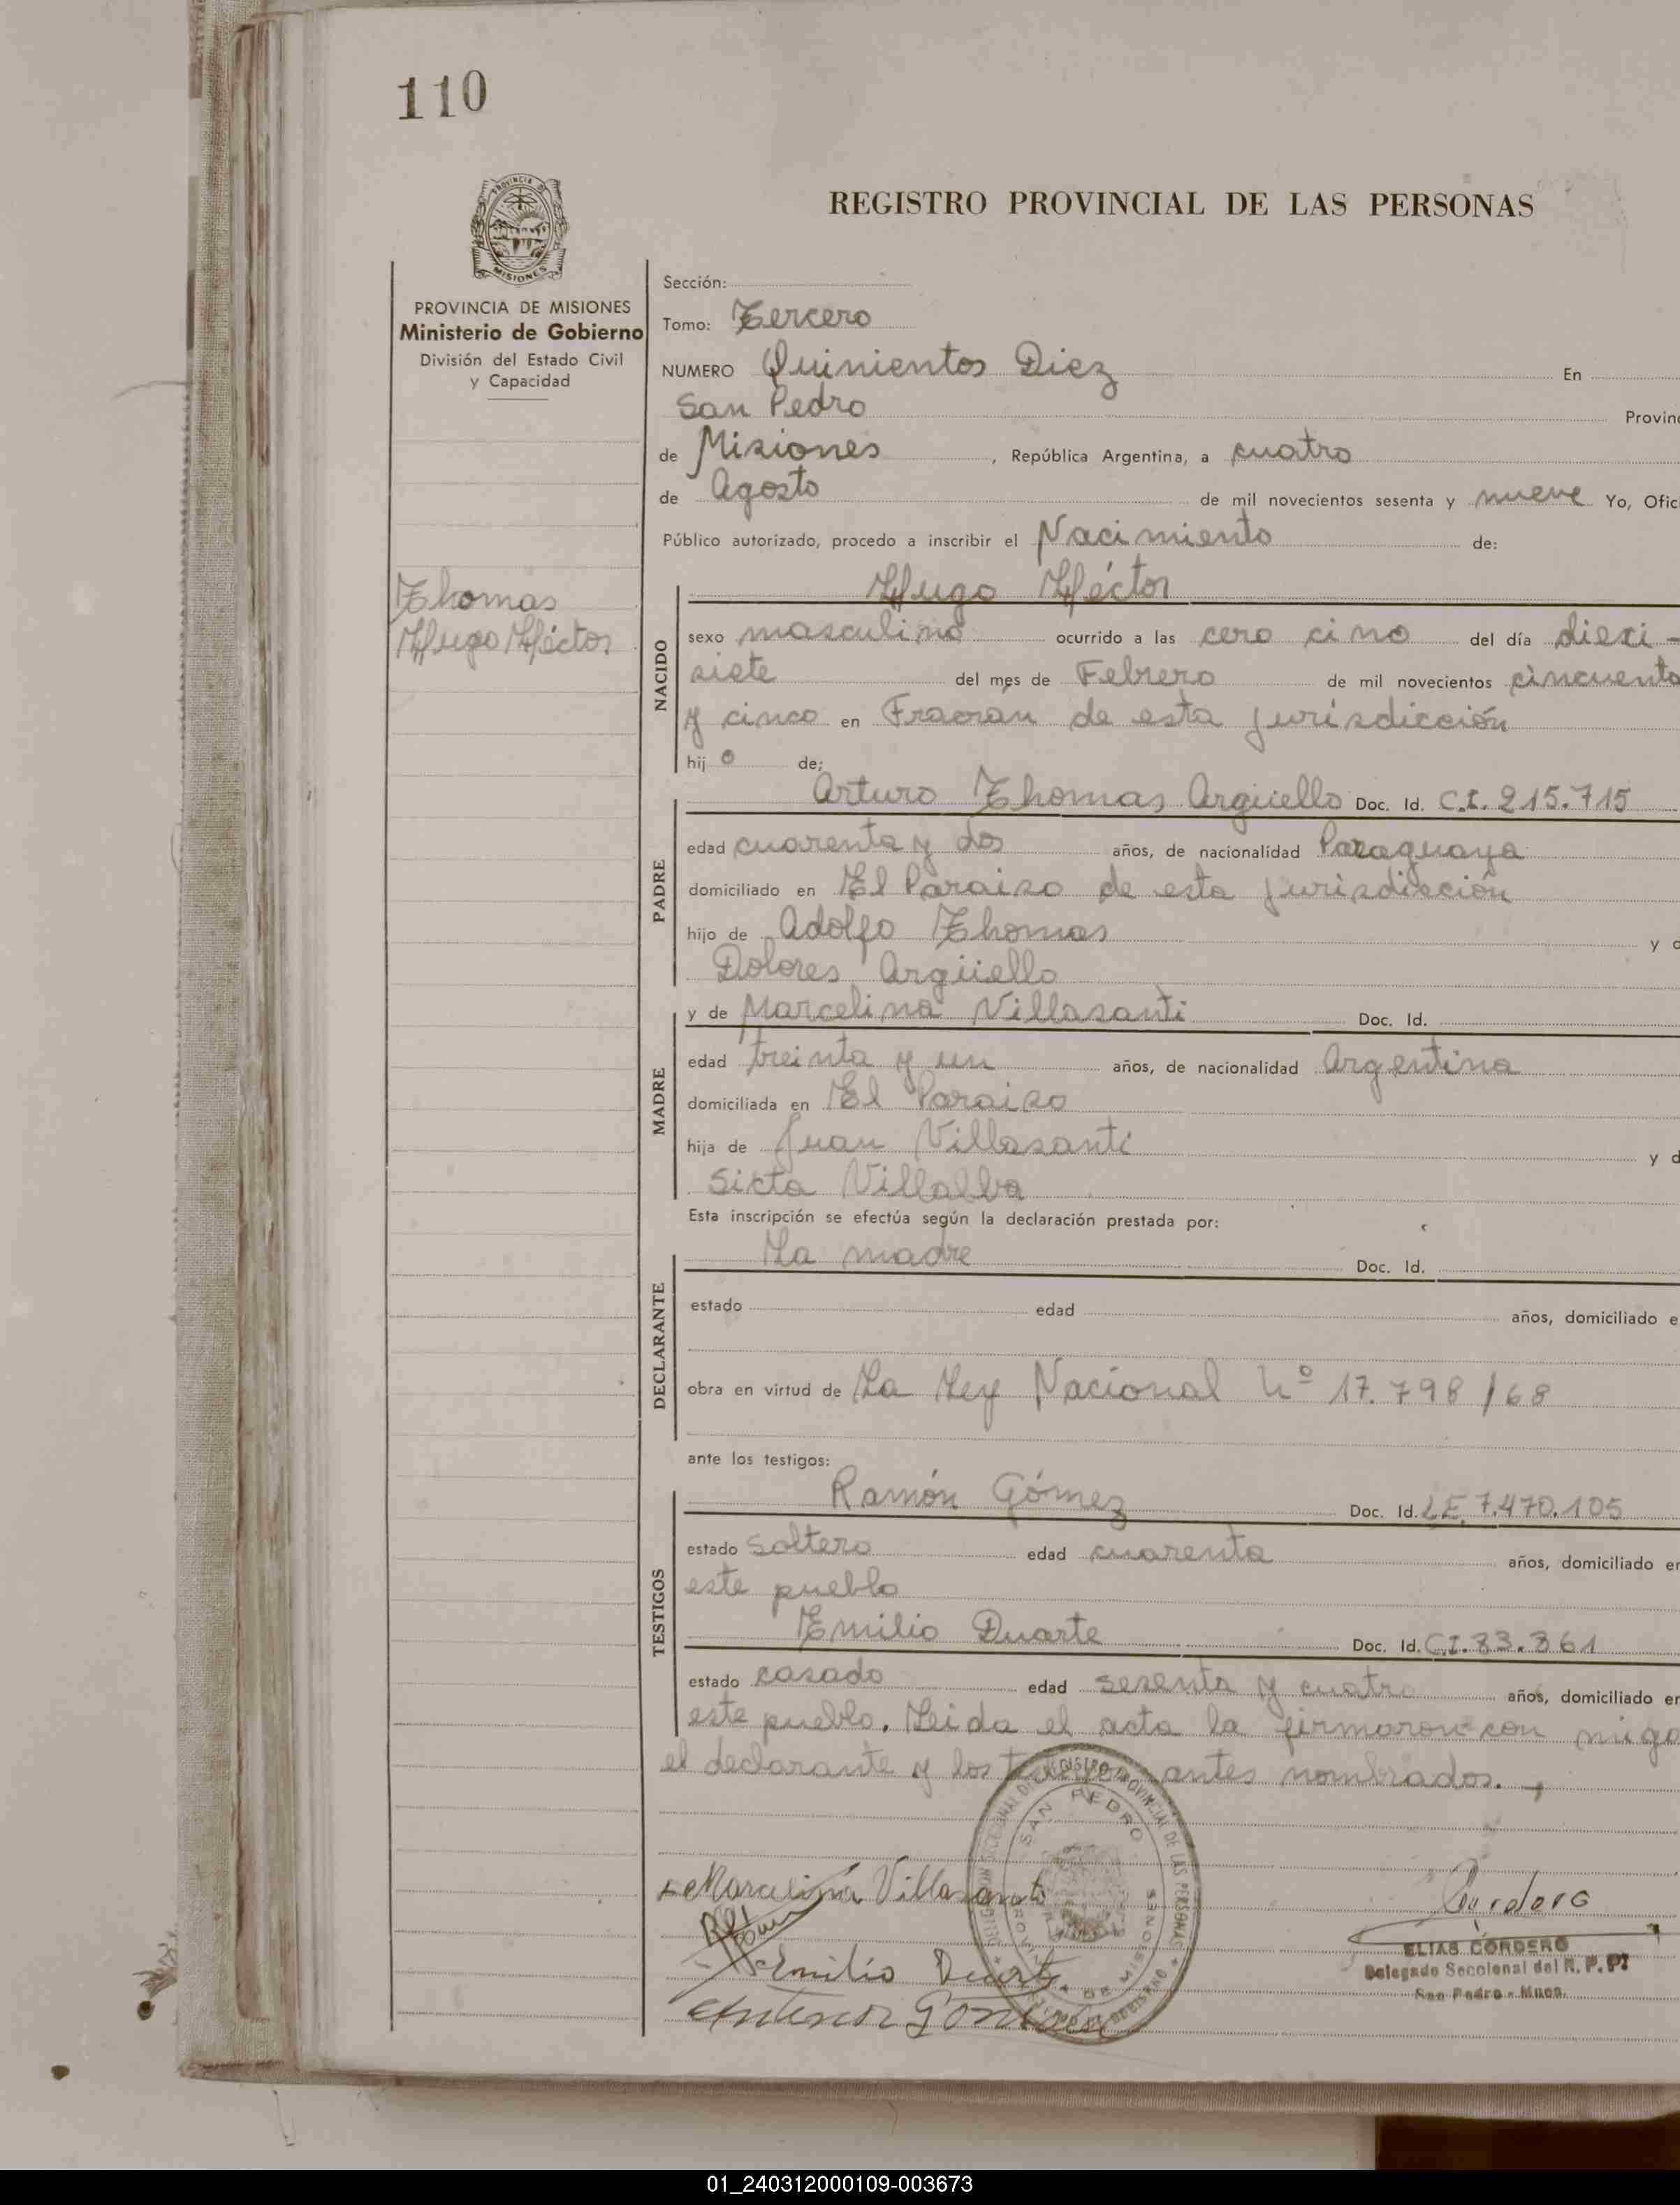 110
PROVINCIA DE
MISIONES
PROVINCIA DE MISIONES
Ministerio de Gobierno
División del Estado Civil
y Capacidad
Thomas
Hugo Héctor
REGISTRO PROVINCIAL DE LAS PERSONAS
Sección:
Tomo: Tercero
NUMERO Quinientos Diez En
San Pedro Provin
de Misiones, República Argentina, a cuatro
de Agosto de mil novecientos sesenta y nueve Yo, Ofic
Público autorizado, procedo a inscribir el Nacimiento de:
Hugo Héctor
NACIDO
sexo masculino ocurrido a las cero cinco del día dieci-
siete del mes de Febrero de mil novecientos cincuenta
y cinco en Fracran de esta jurisdicción
hij o de;
PADRE
Arturo Thomas Argüello Doc. Id. C.I. 215.715
edad cuarenta y dos años, de nacionalidad Paraguaya
domiciliado en El Paraiso de esta jurisdicción
hijo de Adolfo Thomas y d
Dolores Argüello
MADRE
y de Marcelina Villasanti Doc. Id.
edad treinta y un años, de nacionalidad Argentina
domiciliada en El Paraiso
hija de Juan Villasanti y d
Sixta Villalba
Esta inscripción se efectúa según la declaración prestada por:
DECLARANTE
La madre Doc. Id.
estado edad años, domiciliado e
obra en virtud de La Ley Nacional Nº 17.798/68
ante los testigos:
TESTIGOS
Ramón Gómez Doc. Id. LE. 7.470.105
estado soltero edad cuarenta años, domiciliado en
este pueblo
Emilio Duarte Doc. Id. C.I. 83.861
estado casado edad sesenta y cuatro años, domiciliado en
este pueblo. Leida el acta la firmaron con migo
el declarante y los testigos antes nombrados.-,
Marcelina Villasanti
Emilio Duarte
SAN PEDRO
Cordero
ELIAS CORDERO
Delegado Seccional del R. P. P.
San Pedro - Mnes.
01_240312000109-003673